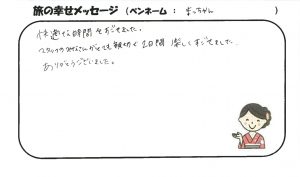 旅の幸せメッセージ（ペンネーム：まっちゃん）
快適な時間をすごせました。
スタッフのみなさんがとても親切で2日間楽しくすごせました。
ありがとうございました。